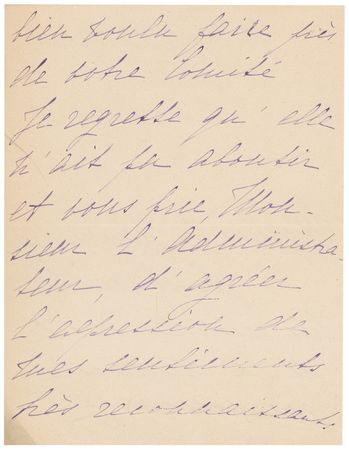 bien voulu faire près
de votre Comité
Je regrette qu'elle
n'ait pu aboutir
et vous prie, Mon-
sieur l'Administra-
teur, d'agréer
l'expression de
mes sentiments
très reconnaissants.